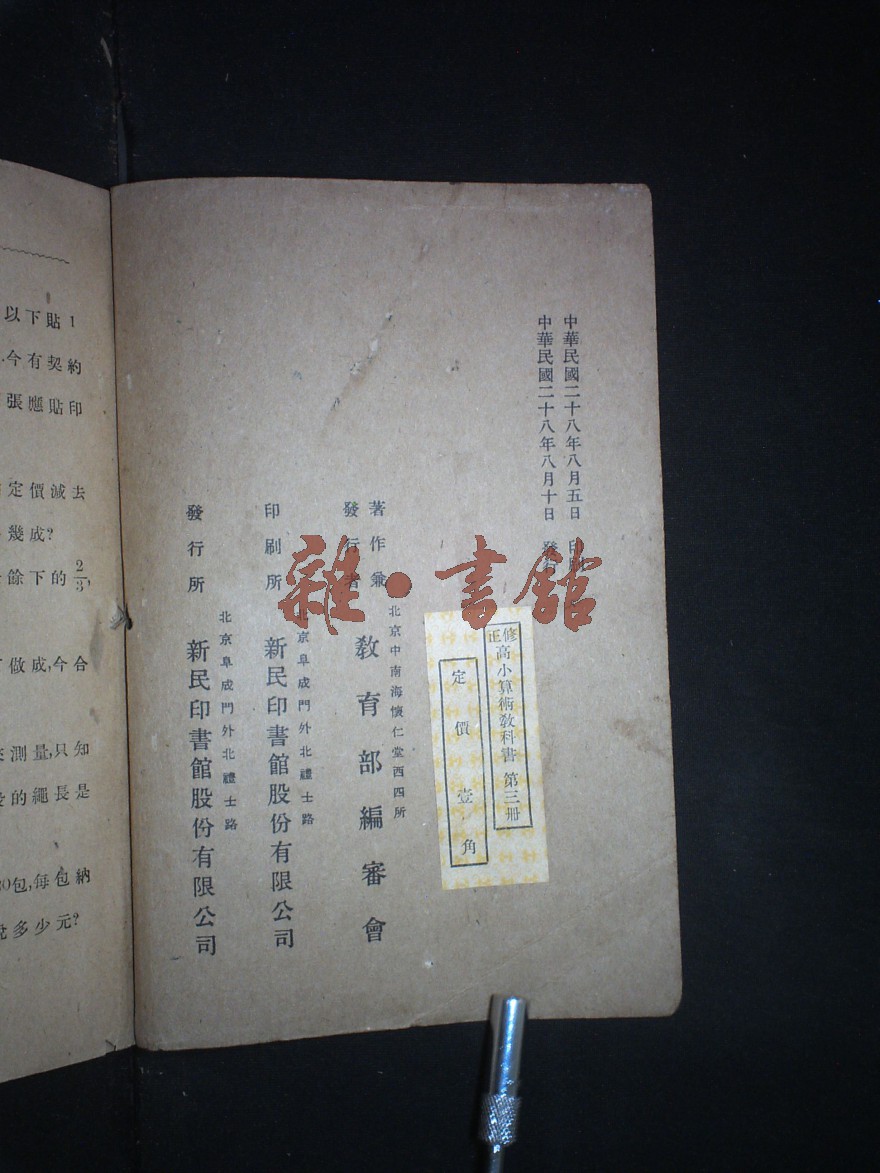 中華民國二十八年八月五日 印刷
中華民國二十八年八月十日 發行
修正高小算術教科書 第三冊
定價壹角
著作兼
發行者
北京中南海懷仁堂西四所
教育部編審會
印刷所
北京阜成門外北禮士路
新民印書館股份有限公司
發行所
北京阜成門外北禮士路
新民印書館股份有限公司
雜·書館
以下貼1
今有契約
張應貼印
定價減去
幾成?
餘下的2/3,
做成,今合
測量,只知
的繩長是
0包,每包納
多少元?